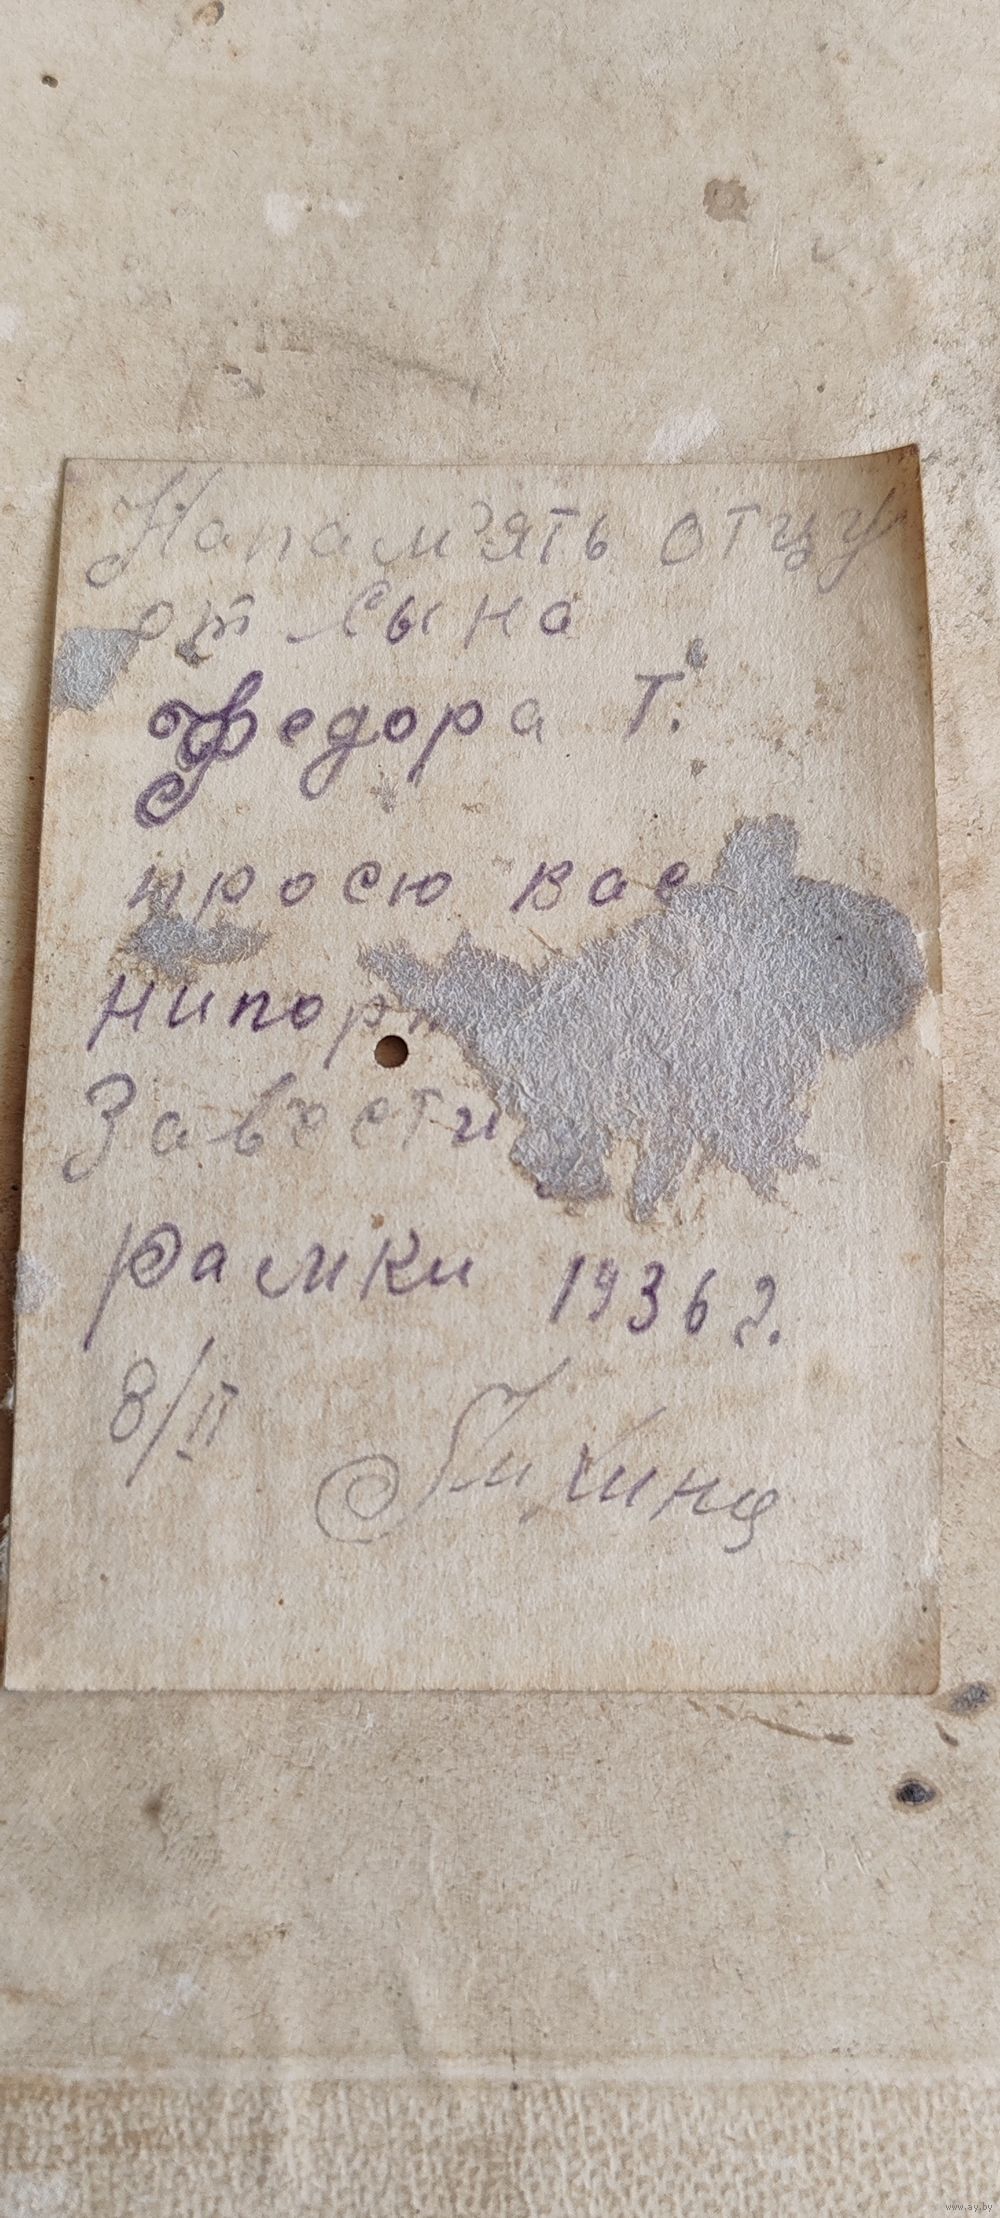 Напам'ять отцу
от сына
Федора Т.
просю вас
нипорт
Завести
рамки 1936 г.
8/II
www.ay.by